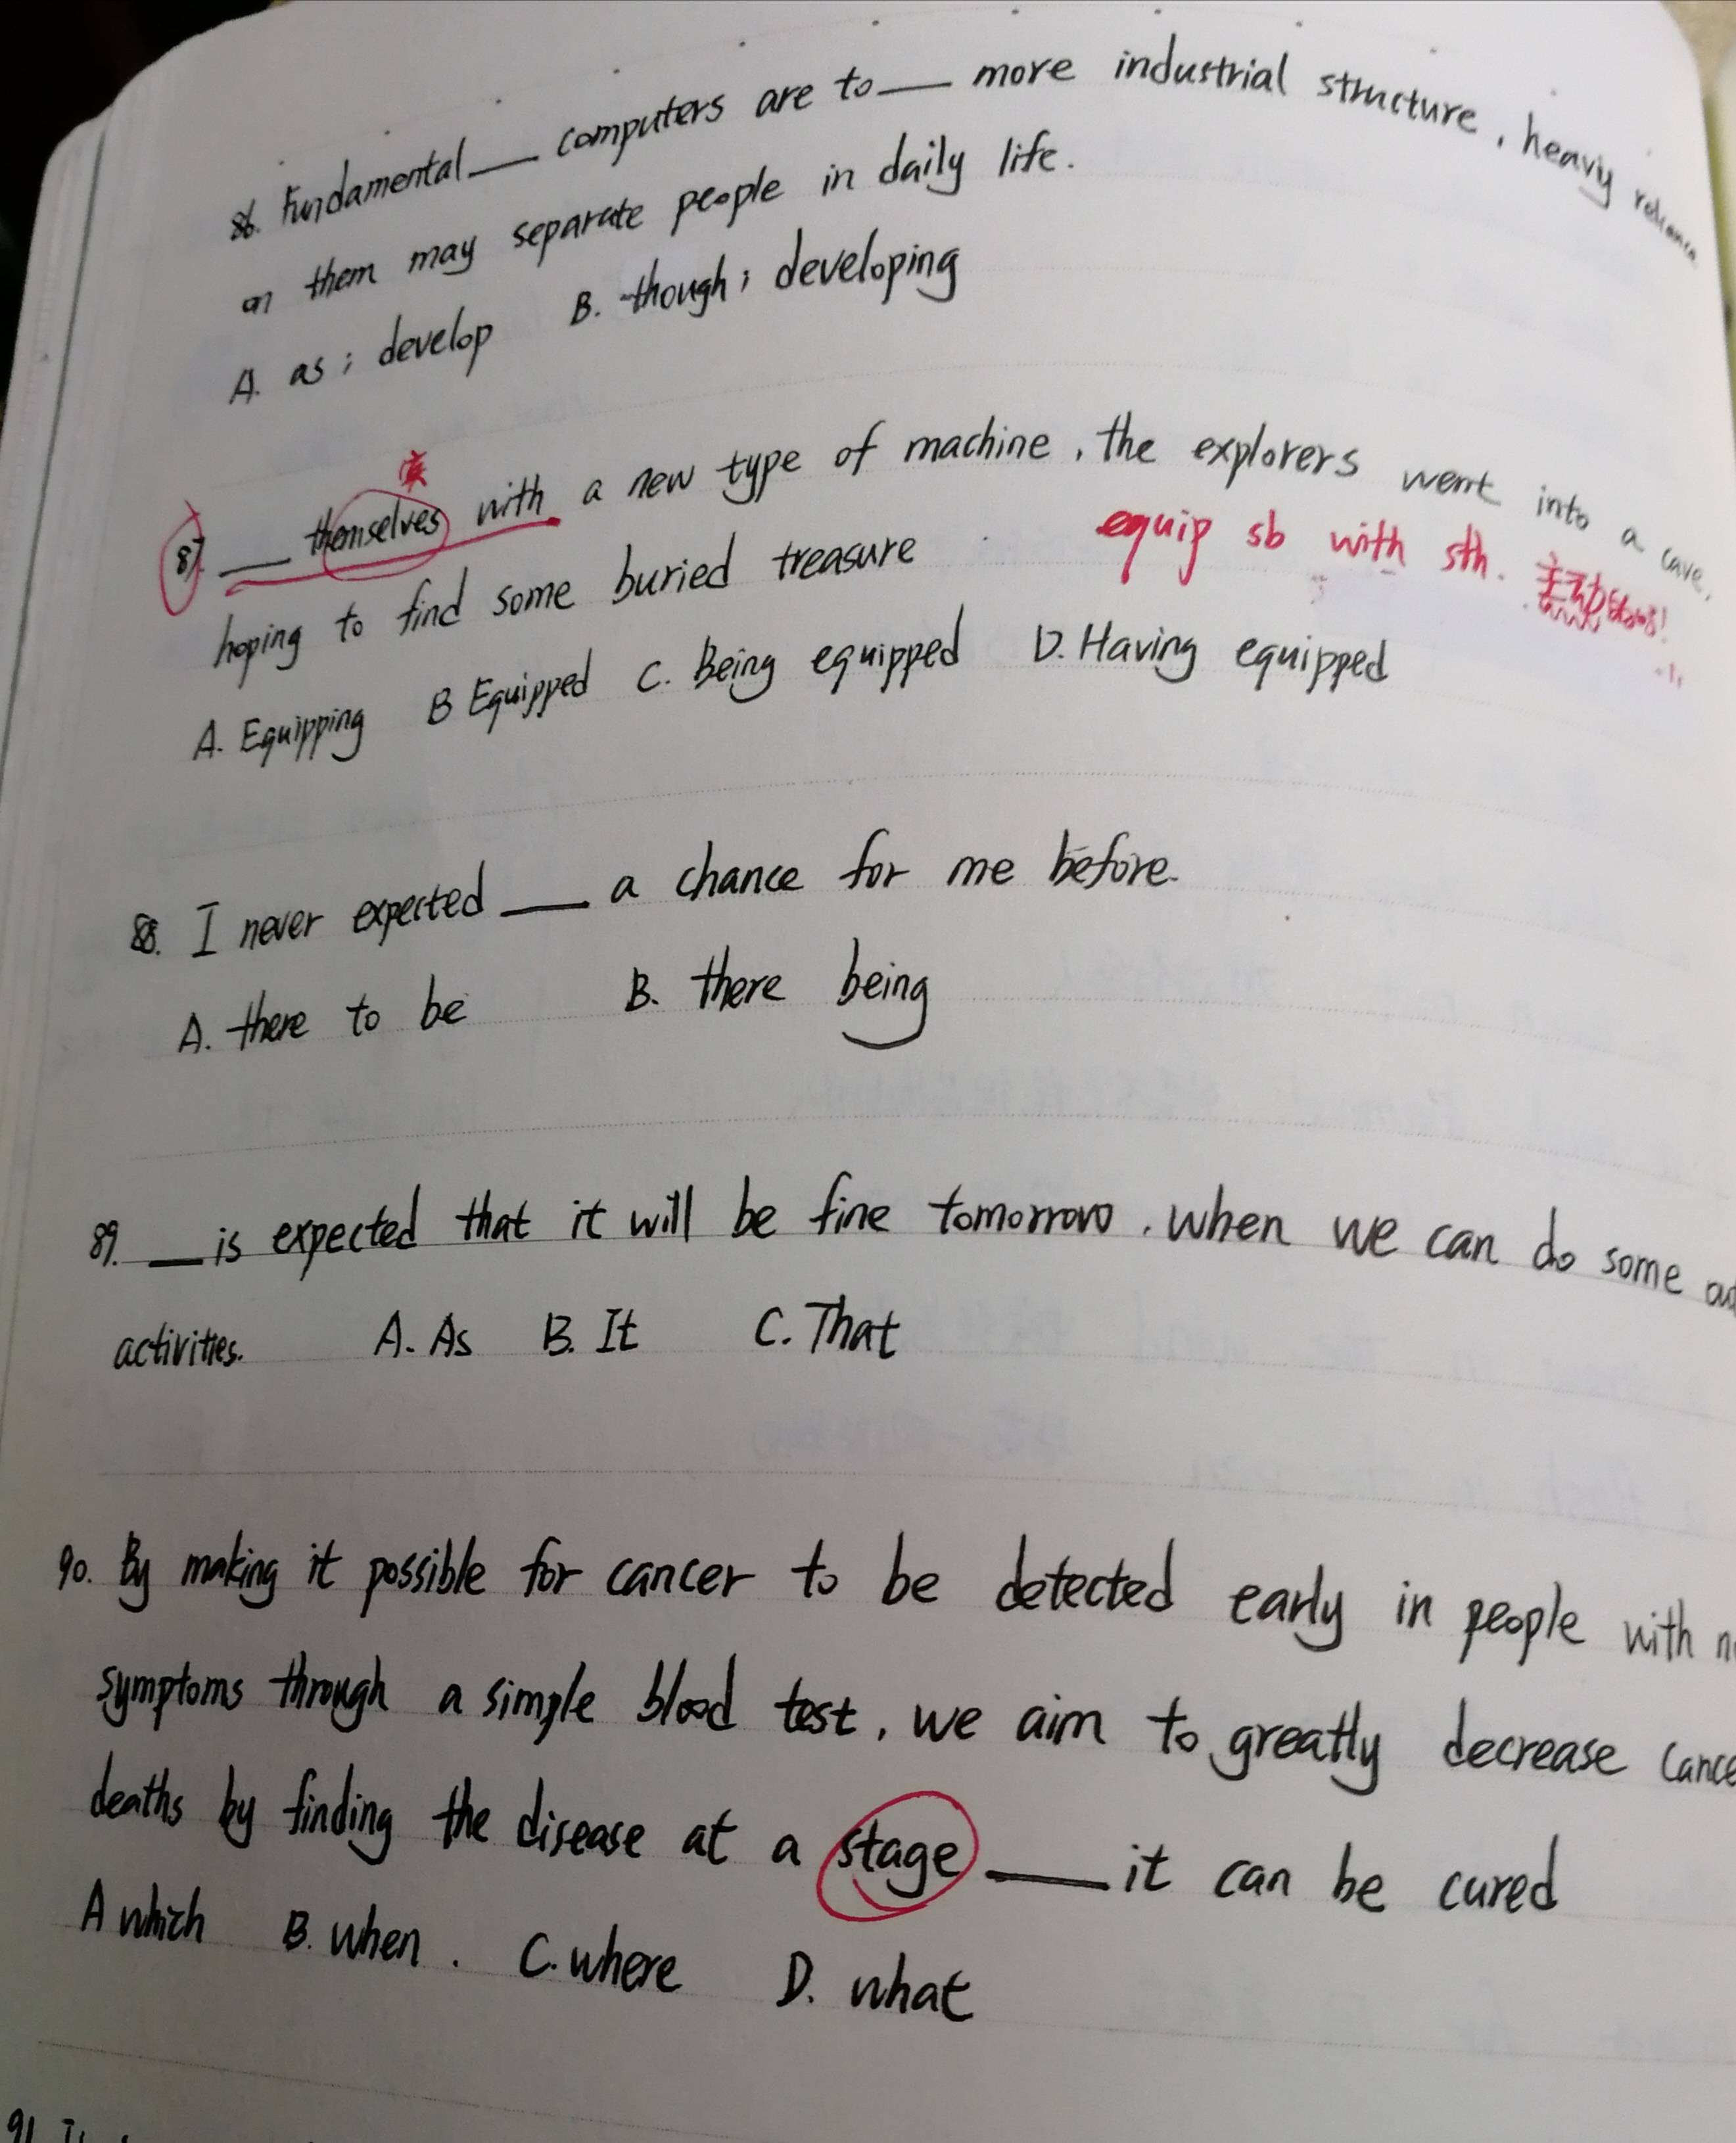 86. Fundamental ___ computers are to ___ more industrial structure, heavy reliance
on them may separate people in daily life.
A. as; develop B. though; developing
87. ___ themselves with a new type of machine, the explorers went into a cave,
equip sb with sth. 主动
hoping to find some buried treasure
A. Equipping B Equipped C. Being equipped D. Having equipped
88. I never expected ___ a chance for me before.
A. there to be B. there being
89. ___ is expected that it will be fine tomorrow, when we can do some
activities. A. As B. It C. That
90. By making it possible for cancer to be detected early in people with
symptoms through a simple blood test, we aim to greatly decrease
deaths by finding the disease at a stage ___ it can be cured
A which B. when. C. where D. what
91.